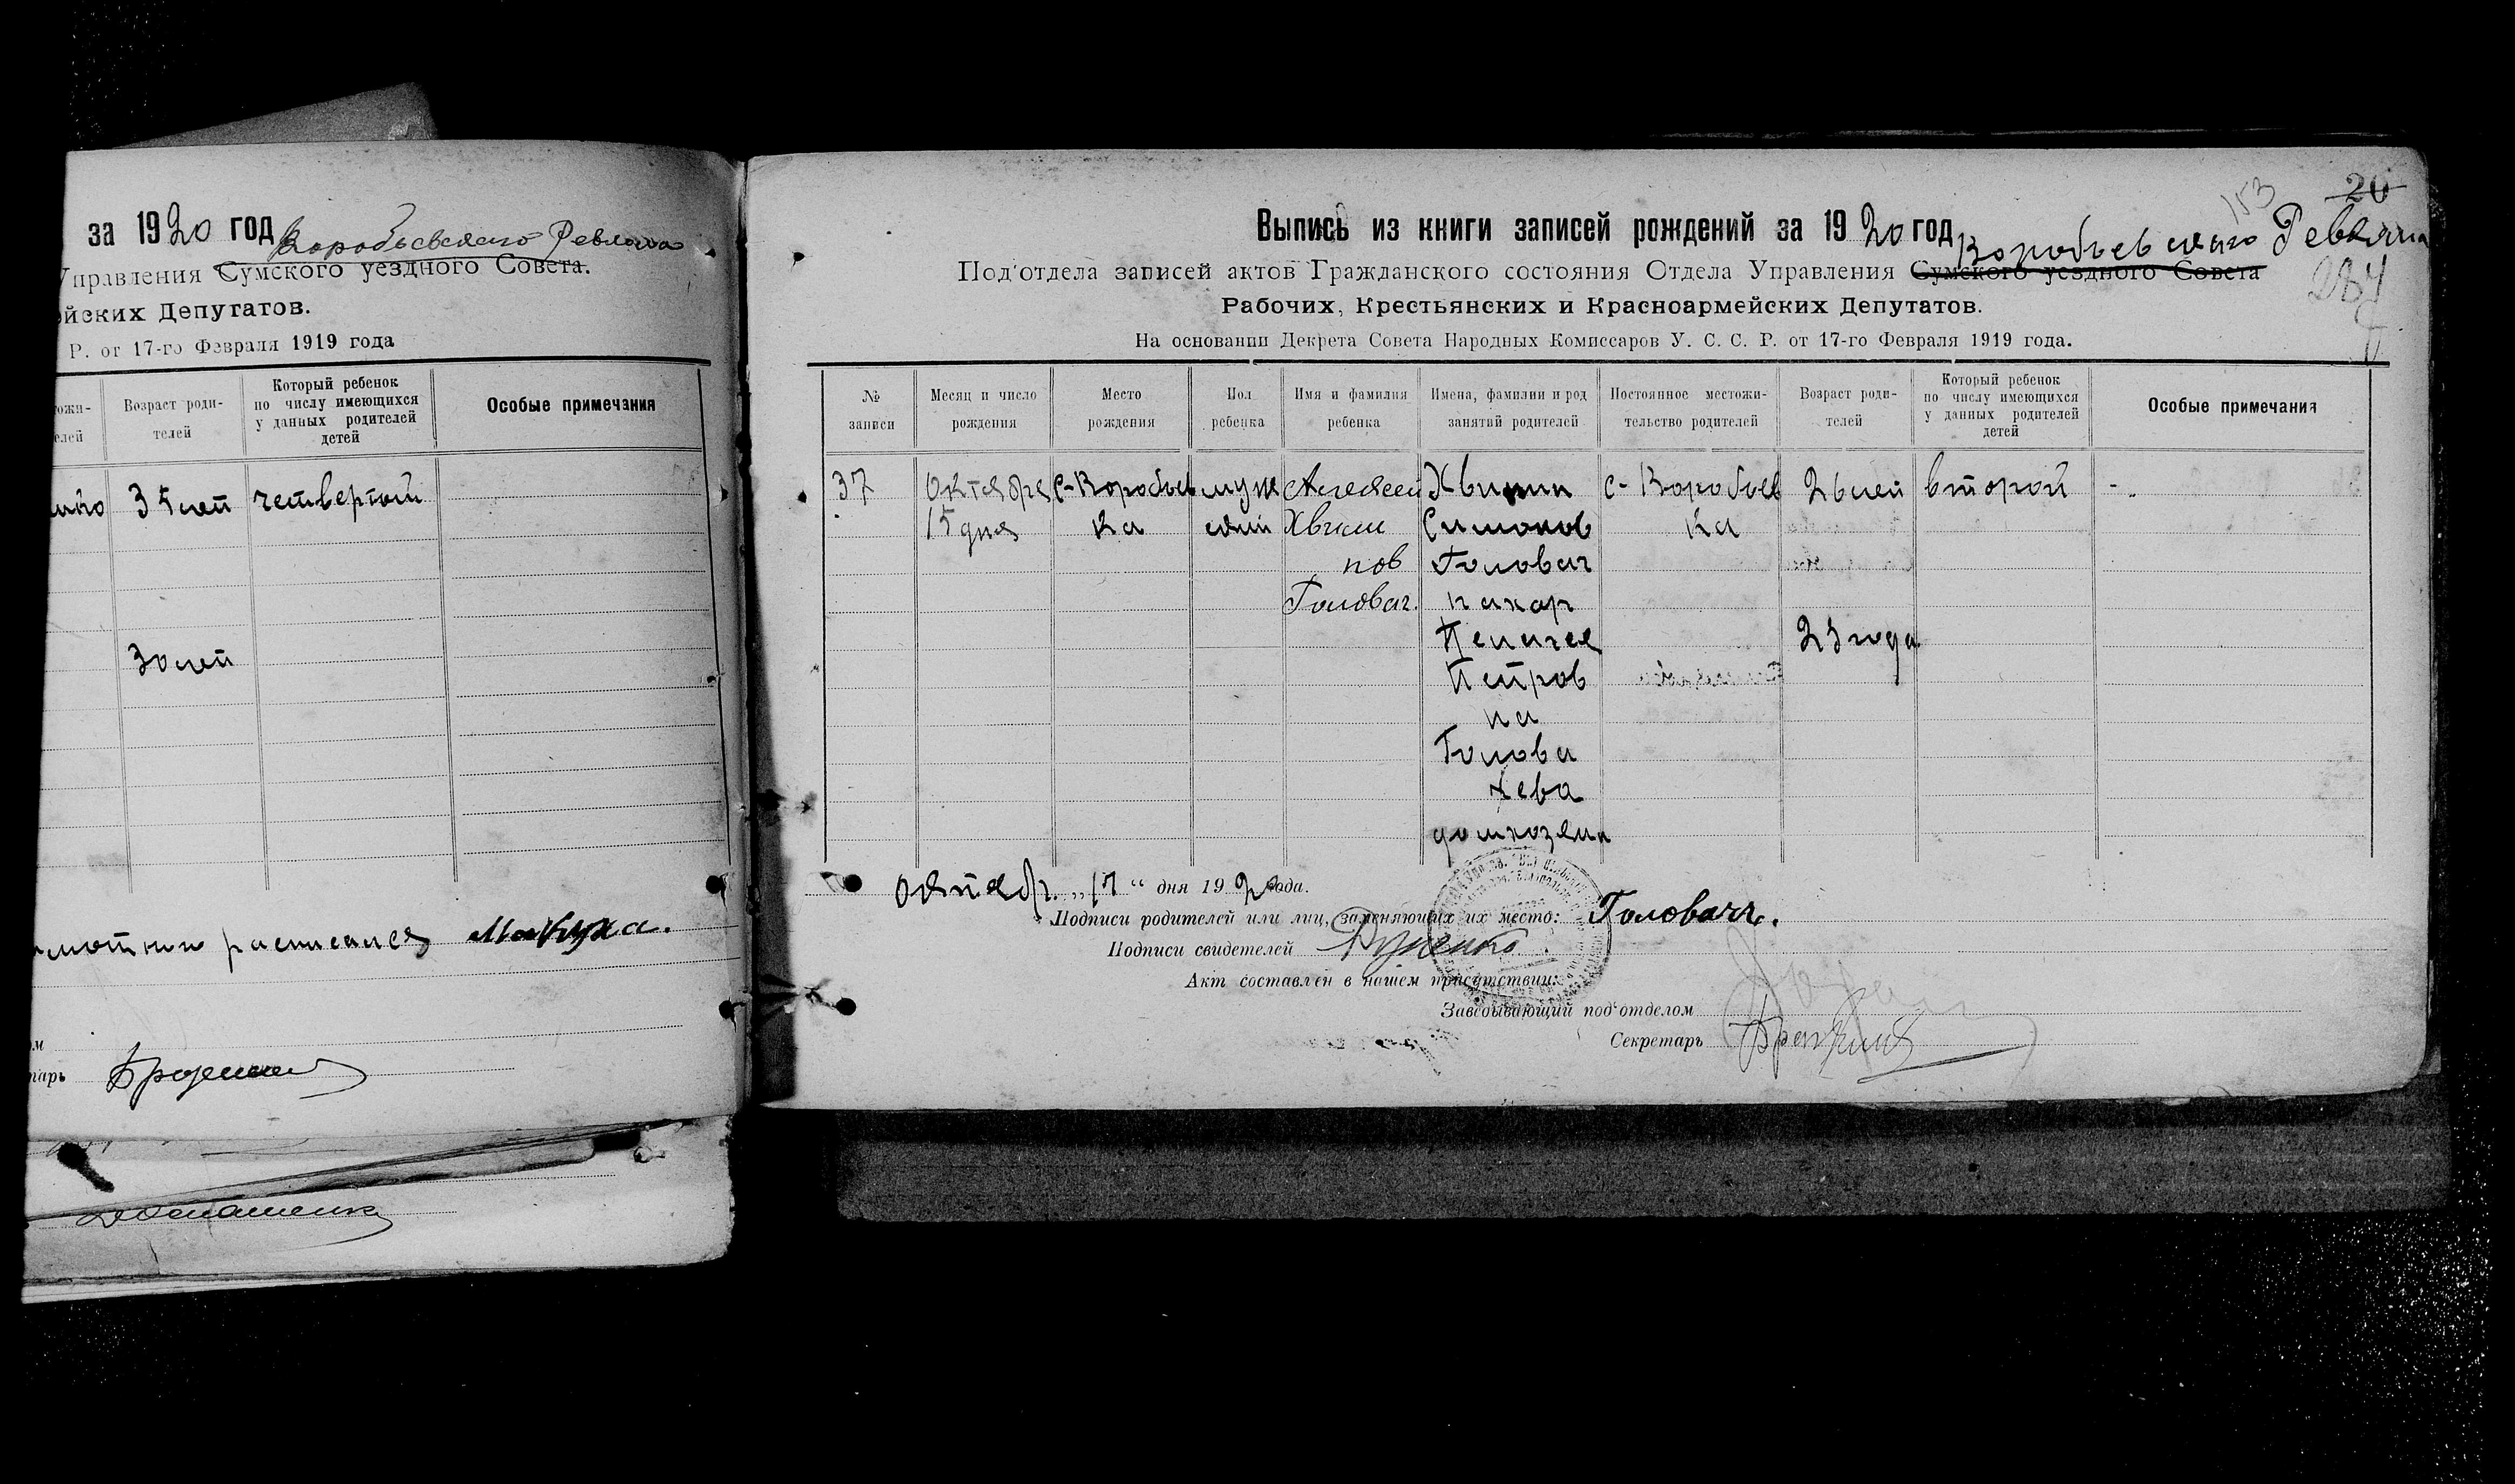 за 1920 год Воробьевского Ревкома
Управления Сумского уездного Совета.
ейских Депутатов.
Р. от 17-го Февраля 1919 года
ожи-
елей
Возраст роди-
телей
Который ребенок
по числу имеющихся
у данных родителей
детей
Особые примечания
35 лет четвертый
30 лет
расписался Макуха.
тарь
20
153
Выпись из книги записей рождений за 1920 год Воробьевского Ревкома
Под'отдела записей актов Гражданского состояния Отдела Управления Сумского уездного Совета
284
Рабочих, Крестьянских и Красноармейских Депутатов.
На основании Декрета Совета Народных Комиссаров У. С. С. Р. от 17-го Февраля 1919 года.
№
записи
Месяц и число
рождения
Место
рождения
Пол
ребенка
Имя и фамилия
ребенка
Имена, фамилии и род
занятий родителей
Постоянное местожи-
тельство родителей
Возраст роди-
телей
Который ребенок
по числу имеющихся
у данных родителей
детей
Особые примечания
37 Октября с-Воробьев муж Алексей Хвилип с-Воробьев 26 лет второй -
15 дня ка ский Хвили Симонов ка
пов Головач
Головач. пахар
Пелагея 23 года
Петров
на
Голова
чева
домхозяйк
Октябр. „17“ дня 1920 года.
Подписи родителей или лиц, заменяющих их место: Головач.
Подписи свидетелей Руденко
Акт составлен в нашем присутствии:
Заведывающий под'отделом
Секретарь